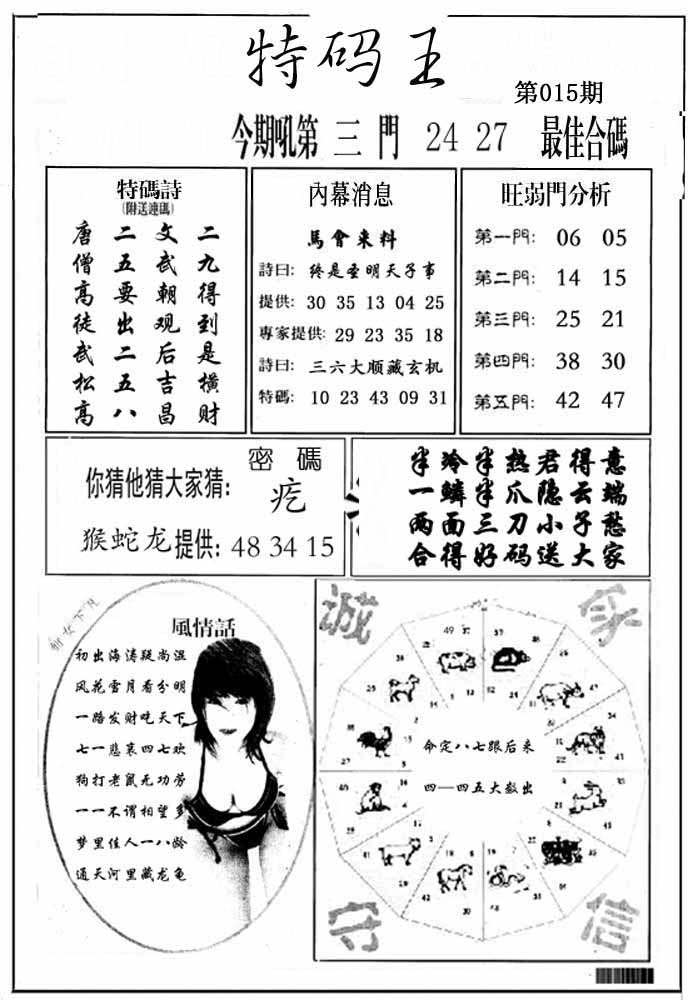 特码王
第015期
今期吼第 三 門 24 27 最佳合碼
特碼詩
(附送連碼)
唐 二 文 二
僧 五 武 九
高 要 朝 得
徒 出 观 到
武 二 后 是
松 五 吉 横
高 八 昌 财
內幕消息
馬會来料
詩曰: 终是圣明天子事
提供: 30 35 13 04 25
專家提供: 29 23 35 18
詩曰: 三六大顺藏玄机
特碼: 10 23 43 09 31
旺弱門分析
第一門: 06 05
第二門: 14 15
第三門: 25 21
第四門: 38 30
第五門: 42 47
密 碼
你猜他猜大家猜: 疙
猴蛇龙提供: 48 34 15
半冷半热君得意
一鳞半爪隐云端
两面三刀小子愁
合得好码送大家
風情話
初出海涛疑尚湿
风花雪月看分明
一路发财吃天下
七一悲哀四七欢
狗打老鼠无功劳
一一不谓相望多
梦里佳人一八龄
通天河里藏龙龟
诚
守
信
命定八七跟后来
四一四五大数出
49 37